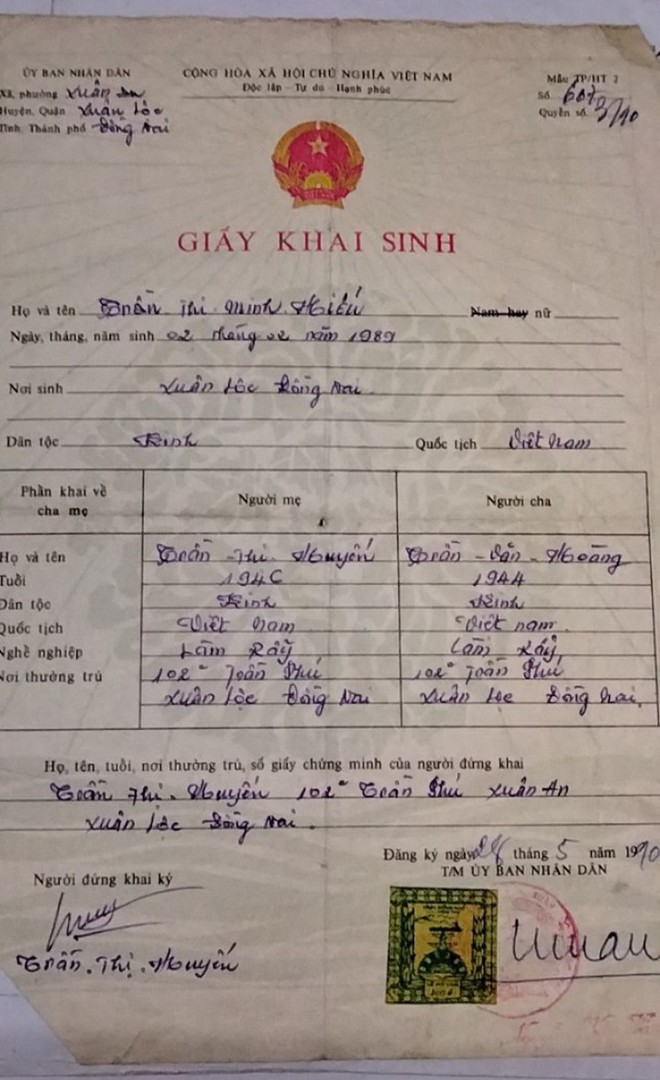 ỦY BAN NHÂN DÂN
CỘNG HÒA XÃ HỘI CHỦ NGHĨA VIỆT NAM
Độc lập - Tự do - Hạnh phúc
Mẫu TP/HT 2
Xã, phường Xuân An
Huyện, Quận Xuân Lộc
Tỉnh, Thành phố Đồng Nai
Số
Quyển số
GIẤY KHAI SINH
Họ và tên Trần Thị Minh Hiếu Nam hay nữ
Ngày, tháng, năm sinh 02 tháng 02 năm 1989
Nơi sinh Xuân Lộc Đồng Nai
Dân tộc Kinh Quốc tịch Việt Nam
Phần khai về cha mẹ Người mẹ Người cha
Họ và tên Trần - Thị - Huyến Trần - Văn - Hoàng
Tuổi 1944
Dân tộc Kinh Kinh
Quốc tịch Việt Nam Việt Nam
Nghề nghiệp Làm Rẫy Làm Rẫy
Nơi thường trú 102 Trần Phú 102 Trần Phú
Xuân Lộc Đồng Nai Xuân Lộc Đồng Nai
Họ, tên, tuổi, nơi thường trú, số giấy chứng minh của người đứng khai
Trần Thị Huyến 102 Trần Phú Xuân An
Xuân Lộc Đồng Nai.
Đăng ký ngày 28 tháng 5 năm 1990
T/M ỦY BAN NHÂN DÂN
Người đứng khai ký
Trần Thị Huyến